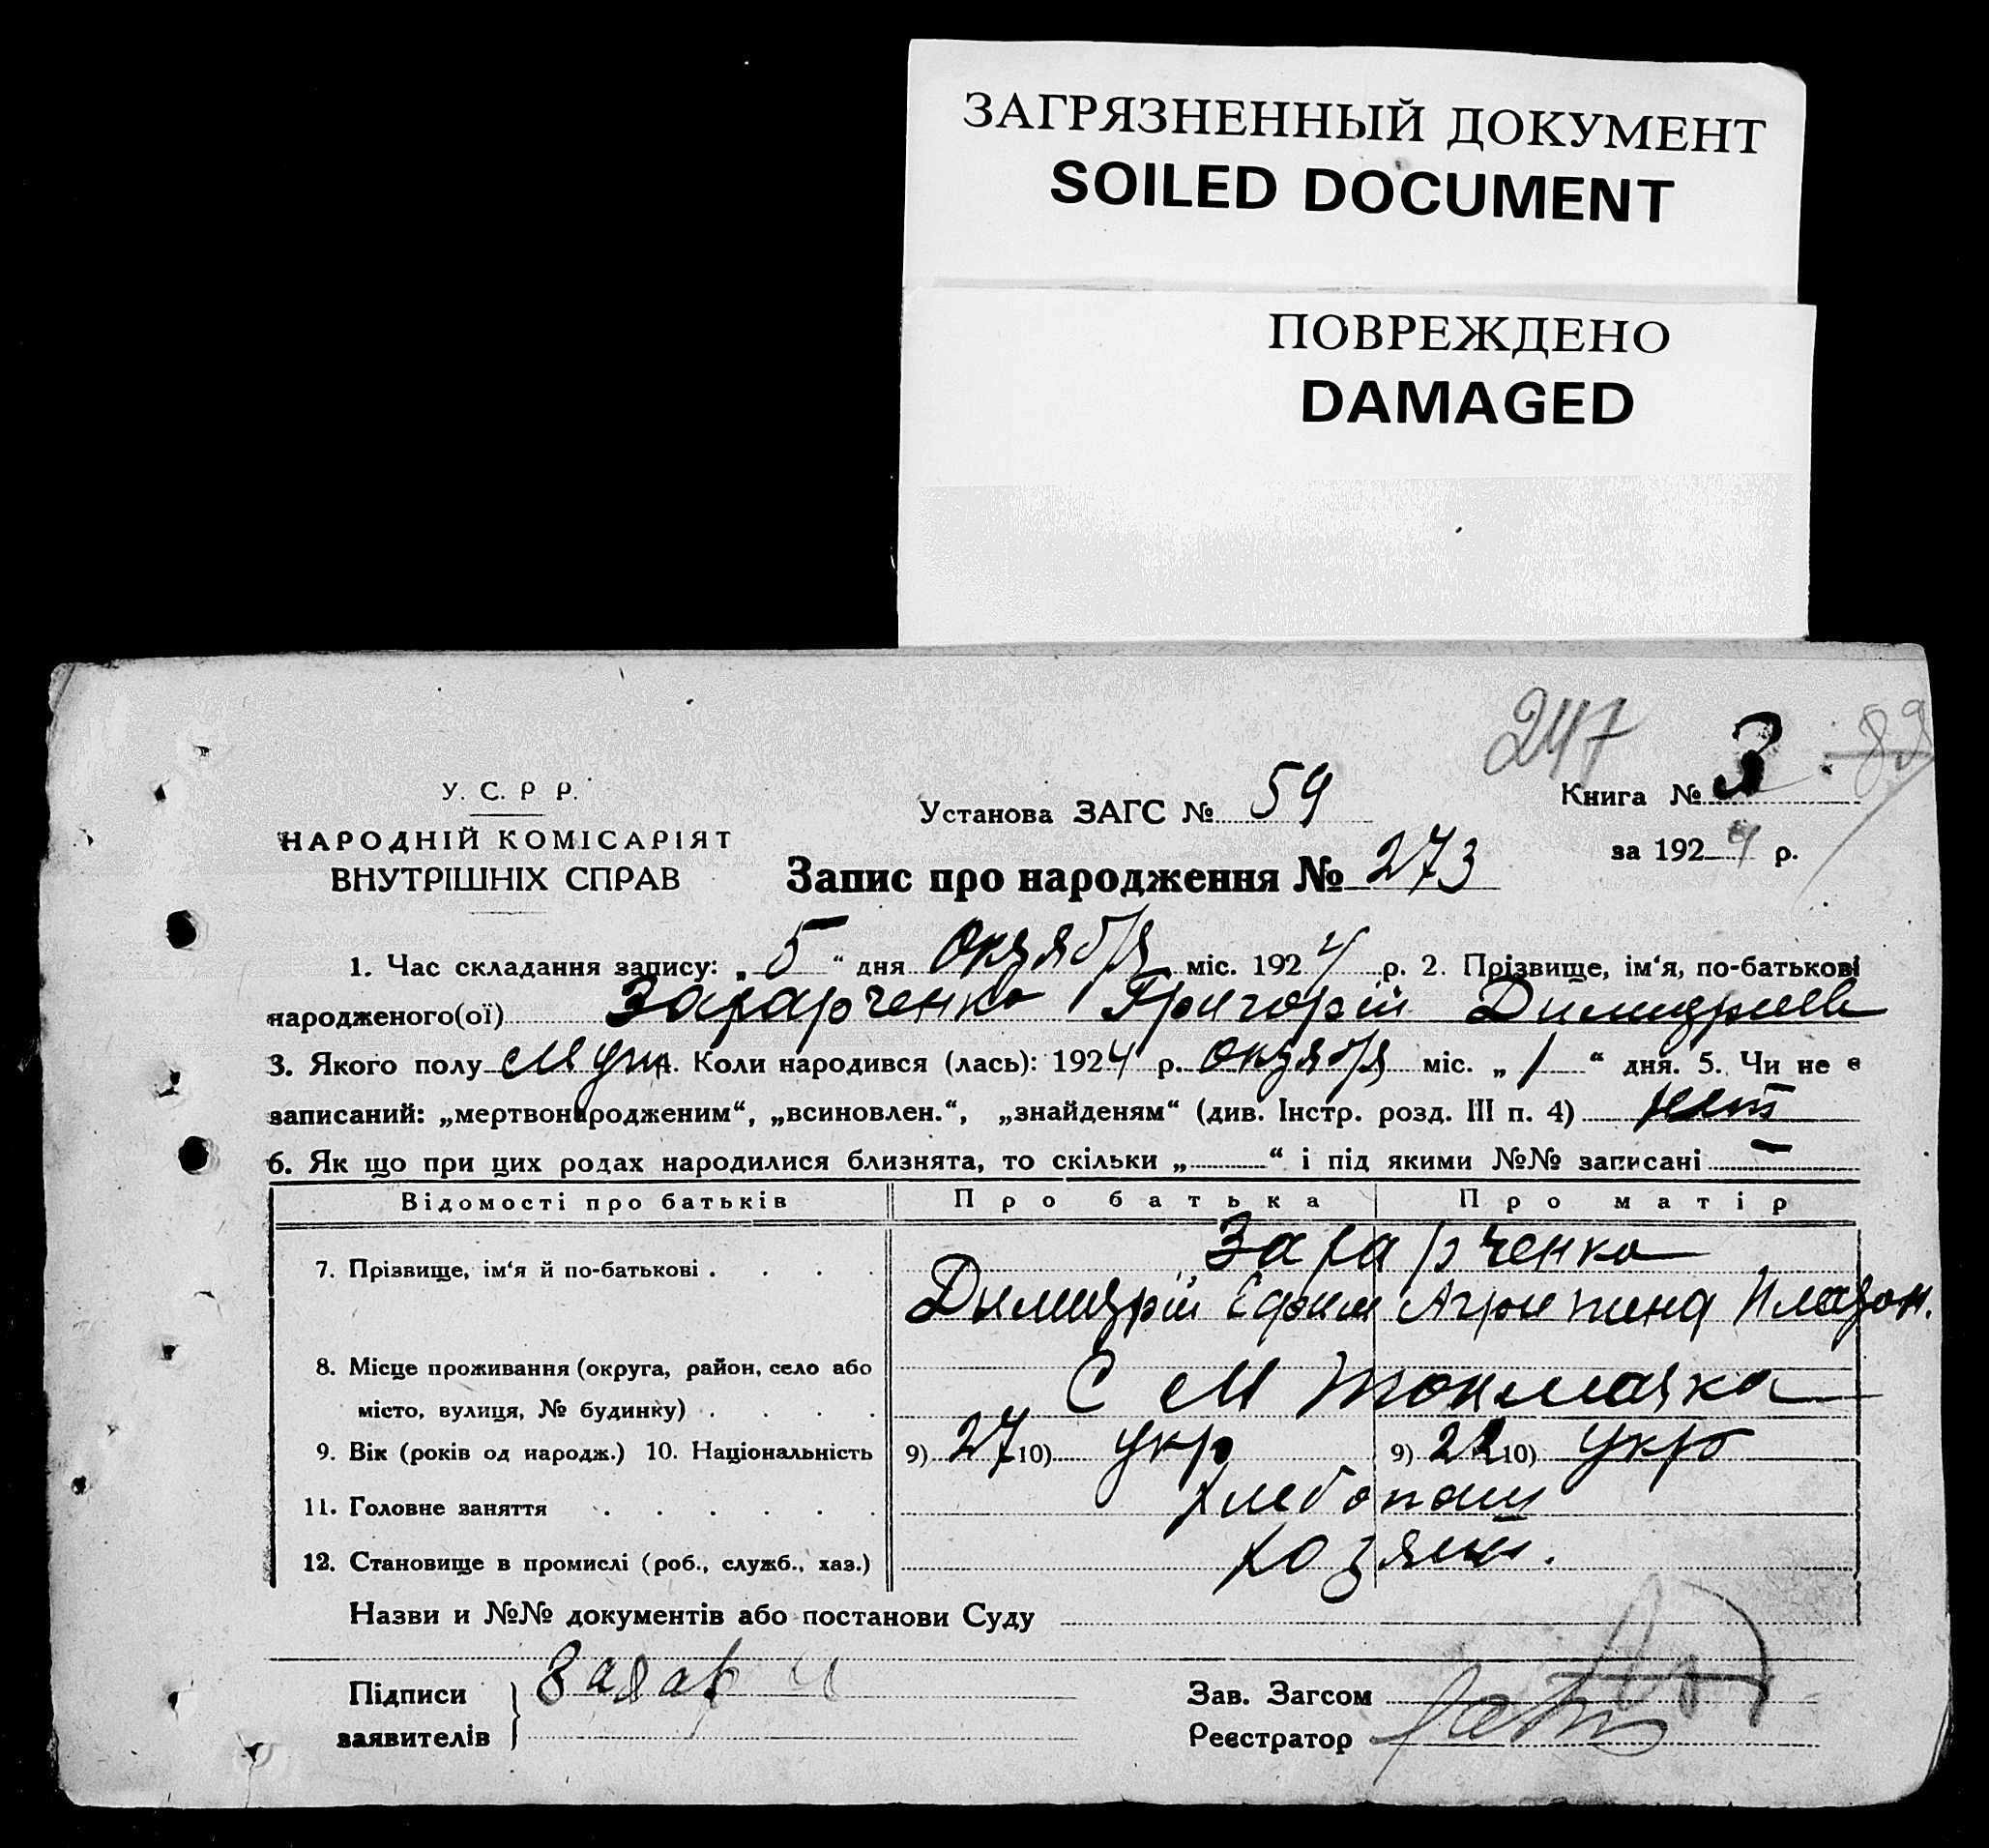 ЗАГРЯЗНЕННЫЙ ДОКУМЕНТ
SOILED DOCUMENT
ПОВРЕЖДЕНО
DAMAGED
247 89
У. С. Р Р.
НАРОДНІЙ КОМІСАРІЯТ
ВНУТРІШНІХ СПРАВ
Установа ЗАГС № 59
Книга № 3
за 1924 р.
Запис про народження № 273
1. Час складання запису: „5“ дня октября міс. 1924 р. 2. Прізвище, ім'я, по-батькові
народженого(ої) Захарченко Григорій Димитриев
3. Якого полу муж. Коли народився (лась): 1924 р. октября міс. „1“ дня. 5. Чи не є
записаний: „мертвонародженим“, „всиновлен.“, „знайденям“ (див. Інстр. розд. III п. 4) нет
6. Як що при цих родах народилися близнята, то скільки „ “ і під якими №№ записані —
Відомості про батьків Про батька Про матір
7. Прізвище, ім'я й по-батькові . . . . Захарченко
Димитрій Ефим Агрипина Платон.
8. Місце проживання (округа, район, село або
місто, вулиця, № будинку) . . . . С М Токмачка
9. Вік (років од народж.) 10. Національність 9) 27 10) укр 9) 22 10) укр
11. Головне заняття . . . . . . хлебопаш
12. Становище в промислі (роб., служб., хаз.) хозяин.
Назви и №№ документів або постанови Суду
Підписи
заявителів
Захар
Зав. Загсом
Реєстратор